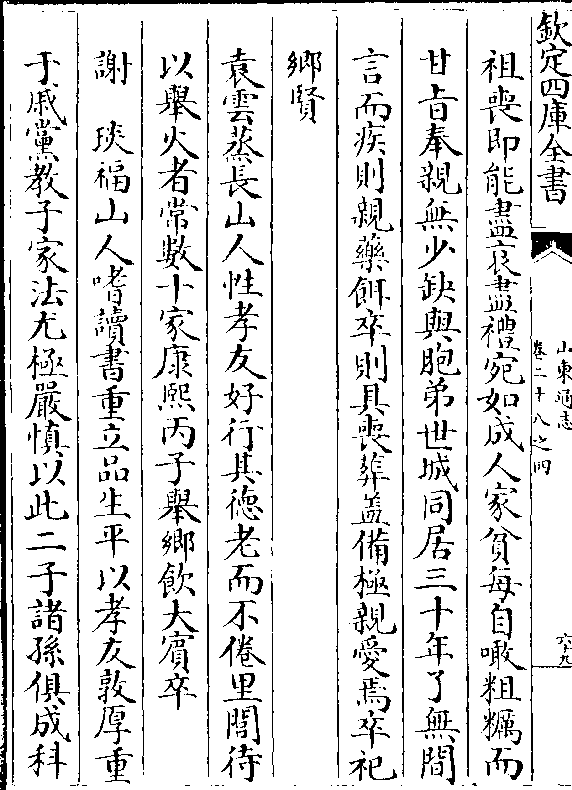 欽定四庫全書
山東通志
卷二十八之四
六十九
祖喪即能盡哀盡禮宛如成人家貧每自噉粗糲而
甘旨奉親無少缺與胞弟世城同居三十年了無間
言而疾則親藥餌卒則具喪葬蓋備極親愛焉卒祀
鄉賢
袁雲蒸長山人性孝友好行其德老而不倦里閭待
以舉火者常數十家康熙丙子舉鄉飲大賓卒
謝 琰福山人嗜讀書重立品生平以孝友敦厚重
于戚黨教子家法尤極嚴慎以此二子諸孫俱成科